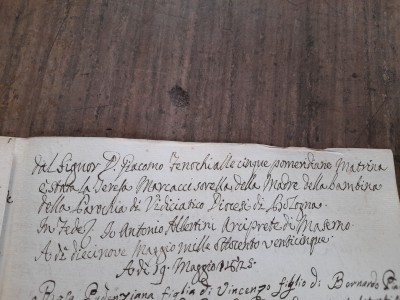 dal Signor D. Giacomo Fenochi alle cinque pomeridiane Matrina
è stata la Teresa Marcacci sorella della Madre della bambina
della Parochia di Vidiciatico Diocesi di Bologna.
In Fede Io Antonio Albertini Arciprete di Maserno
A dì diecinove Maggio mille ottocento venticinque
A dì 19. Maggio
figlia di Vincenzo figlio di Bernardo